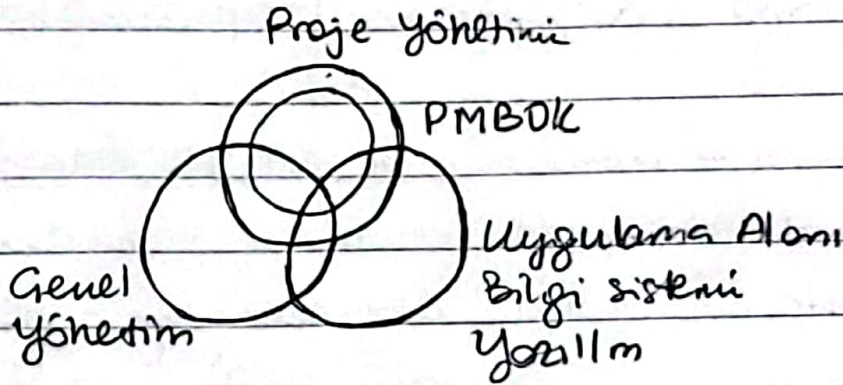 Proje Yönetimi
PMBOK
Uygulama Alanı
Bilgi sistemi
Yazılım
Genel
Yönetim